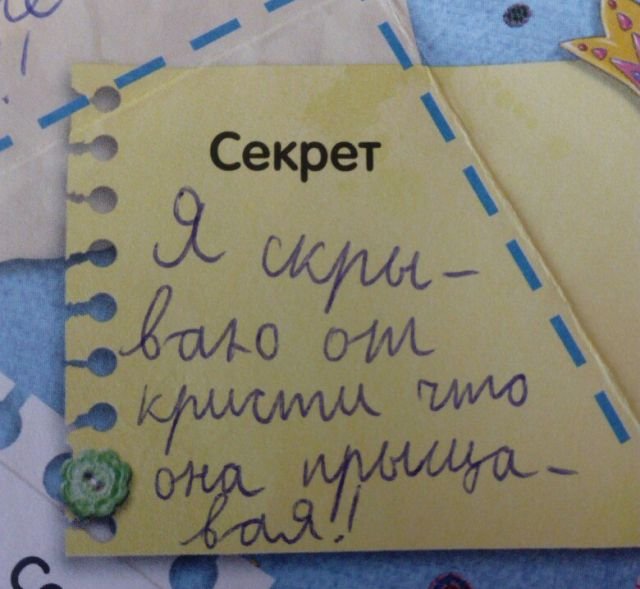 Секрет
Я скры-
ваю от
кристи что
она прыща-
вая!